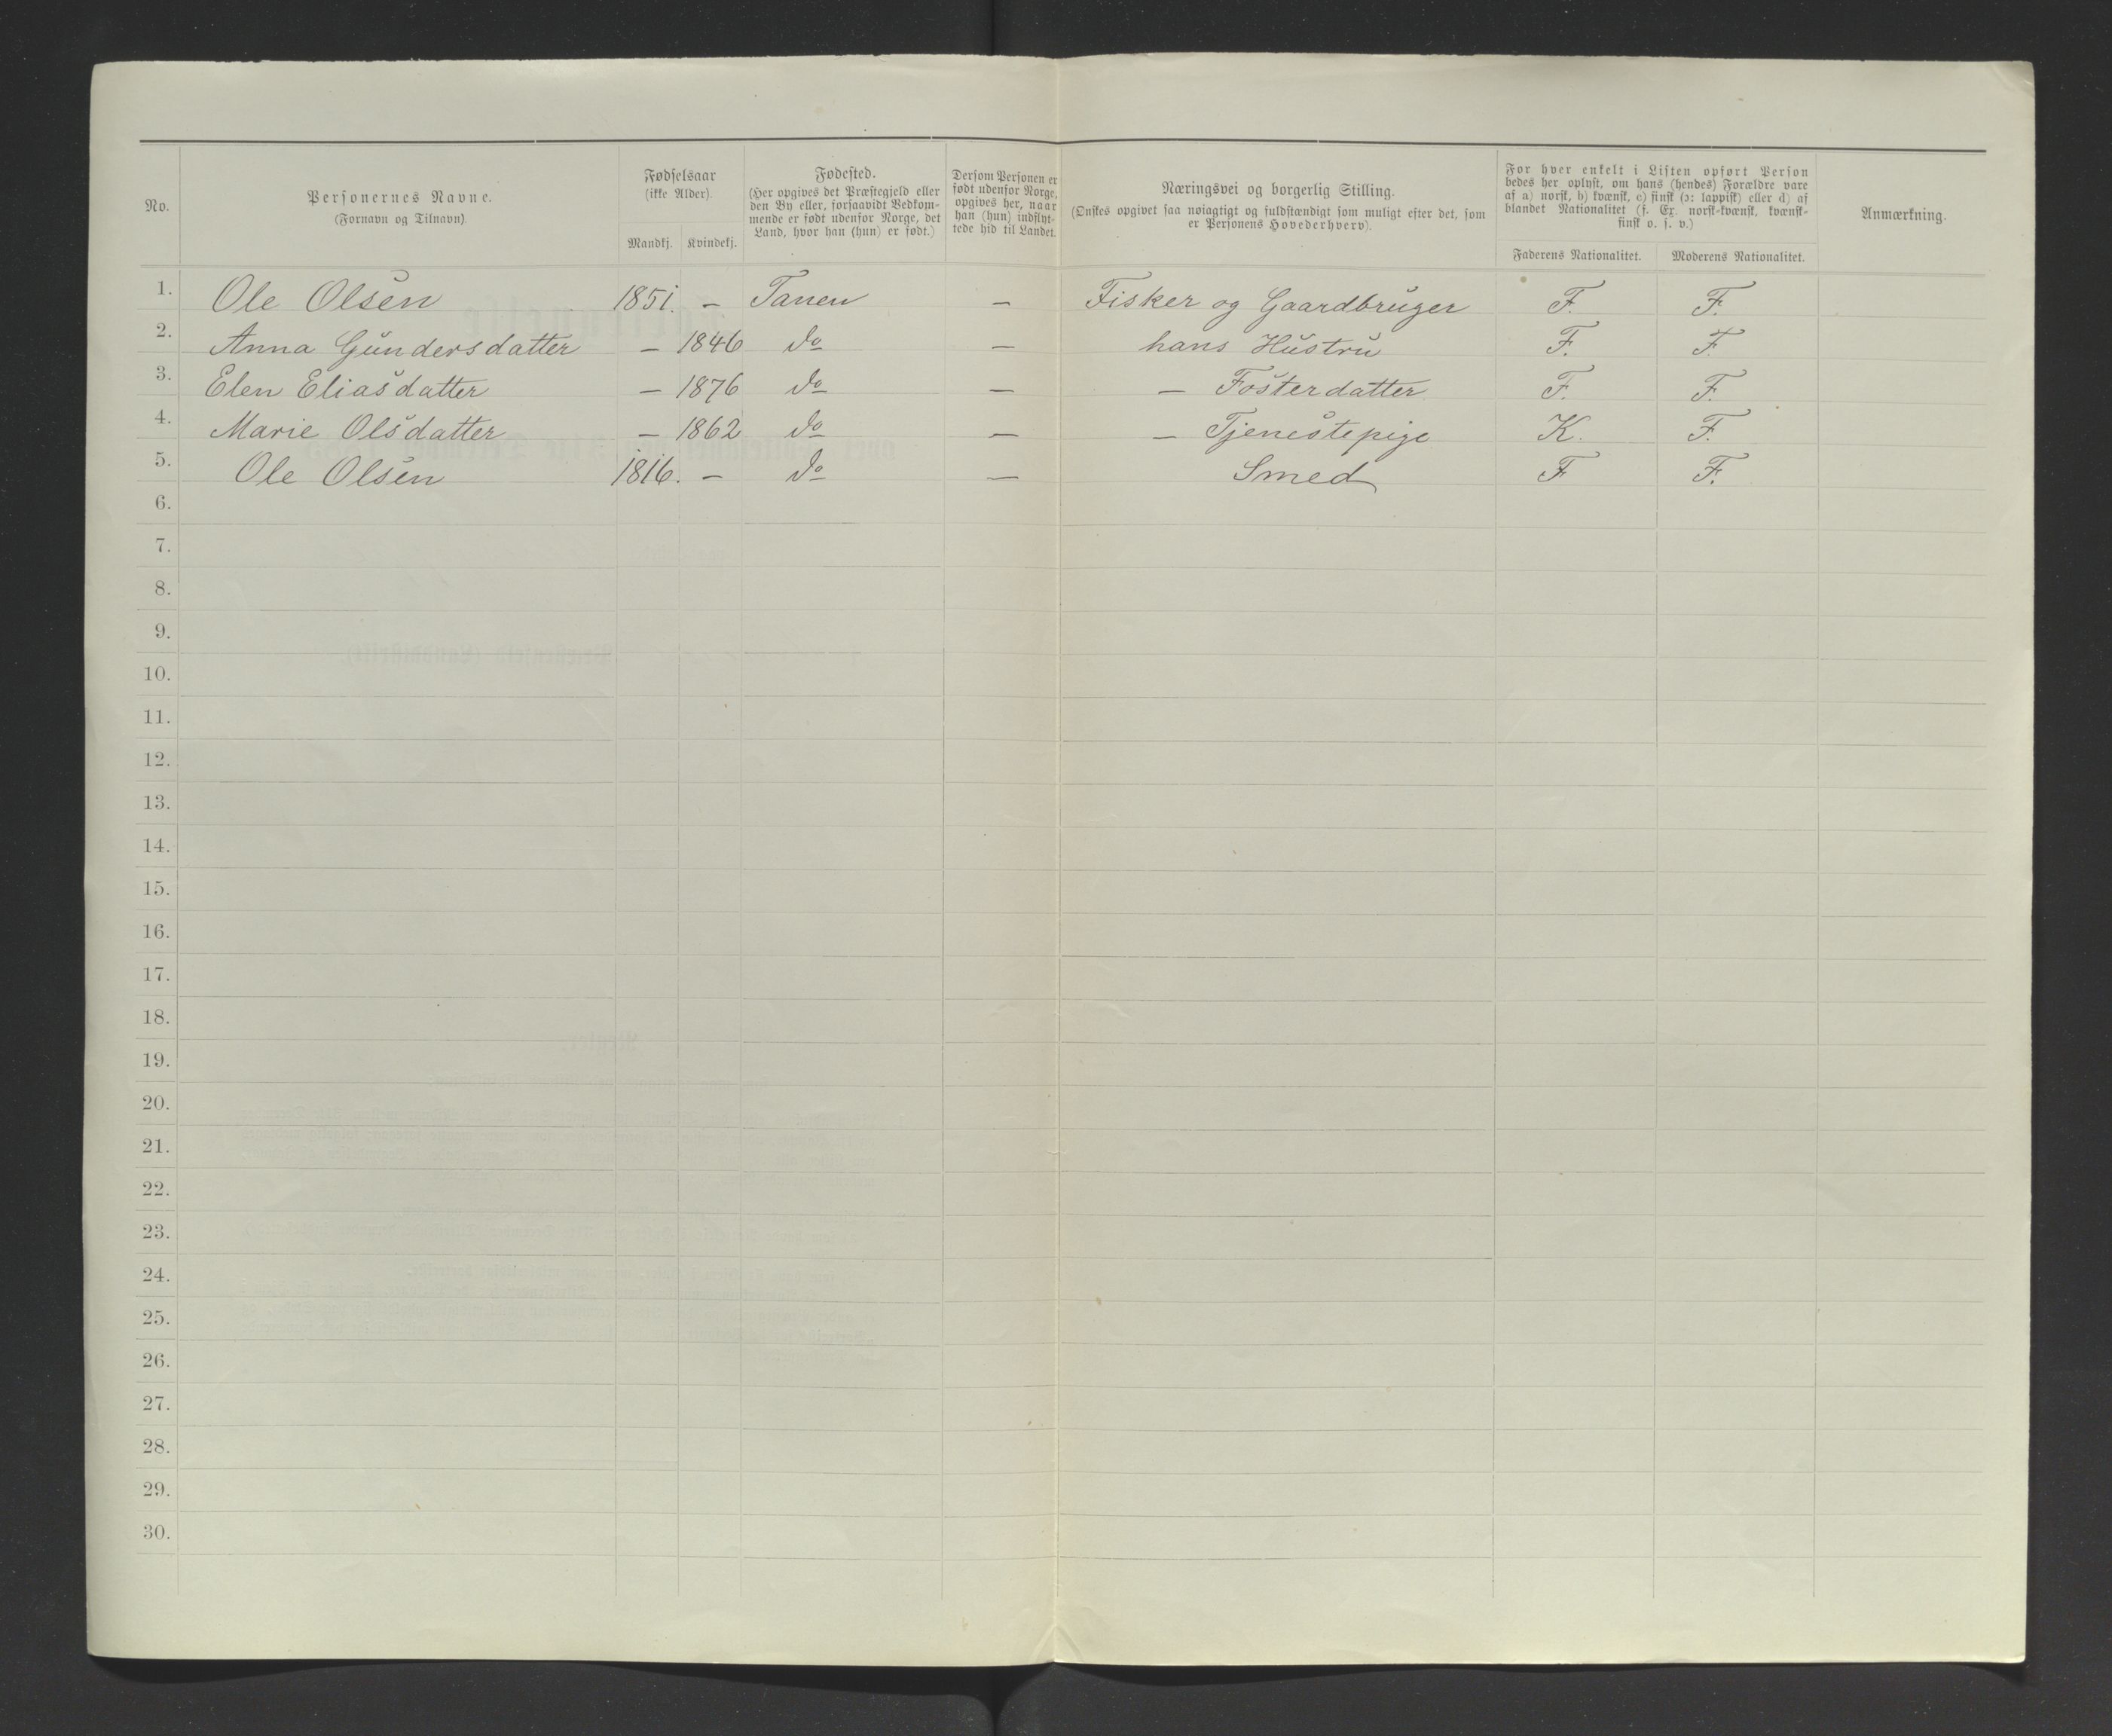 No.
Personernes Navne.
(Fornavn og Tilnavn).
Fødselsaar
(ikke Alder).
Mandkj. Kvindekj.
Fødested.
(Her opgives det Præstegjeld eller
den By eller, forsaavidt Vedkom-
mende er født udenfor Norge, det
Land, hvor han (hun) er født.)
Dersom Personen er
født udenfor Norge,
opgives her, naar
han (hun) indflyt-
tede hid til Landet.
Næringsvei og borgerlig Stilling.
(Ønskes opgivet saa nøiagtigt og fuldstændigt som muligt efter det, som
er Personens Hovederhverv).
For hver enkelt i Listen opført Person
bedes her oplyst, om hans (hendes) Forældre vare
af a) norsk, b) kvænsk, c) finsk (ɔ: lappisk) eller d) af
blandet Nationalitet (f. Ex. norsk-kvænsk, kvænsk-
finsk o. s. v.)
Faderens Nationalitet. Moderens Nationalitet.
Anmærkning.
1. Ole Olsen 1851. – Tanen – Fisker og Gaardbruger F. F.
2. Anna Gundersdatter – 1846 do – hans Hustru F. F
3. Elen Eliasdatter – 1876 do – – Fosterdatter F. F.
4. Marie Olsdatter – 1862 do – – Tjenestepige K. F.
5. Ole Olsen 1816. – do – Smed F F.
6.
7.
8.
9.
10.
11.
12.
13.
14.
15.
16.
17.
18.
19.
20.
21.
22.
23.
24.
25.
26.
27.
28.
29.
30.